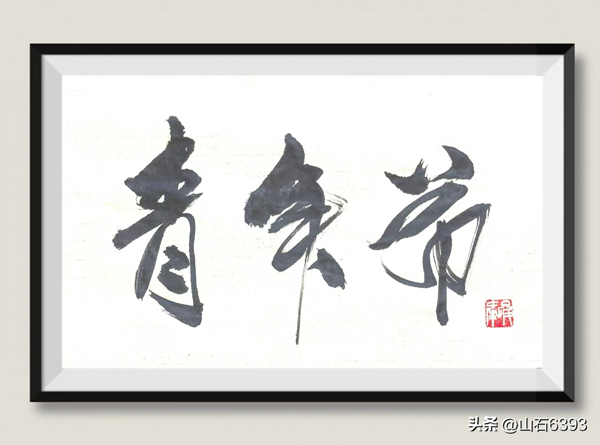 青年节
头条 @山石6393